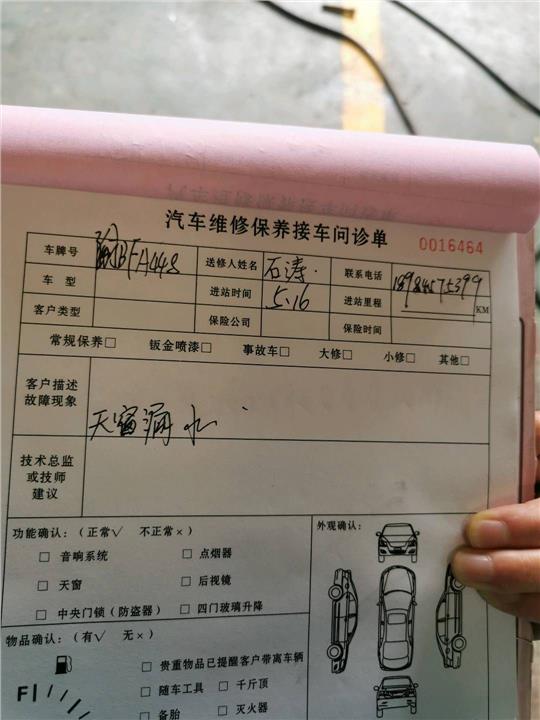 汽车维修保养接车问诊单
0016464
车牌号 渝BFA448 送修人姓名 石涛. 联系电话
车 型 进站时间 5.16 进站里程 KM
客户类型 保险公司 保险时间
常规保养□ 钣金喷漆□ 事故车□ 大修□ 小修□ 其他□
客户描述
故障现象
天窗漏水
技术总监
或技师
建议
功能确认：（正常√ 不正常×） 外观确认：
□ 音响系统 □ 点烟器
□ 天窗 □ 后视镜
□ 中央门锁（防盗器） □ 四门玻璃升降
物品确认：（有√ 无×）
□ 贵重物品已提醒客户带离车辆
□ 随车工具 □ 千斤顶
□ 备胎 □ 灭火器
F